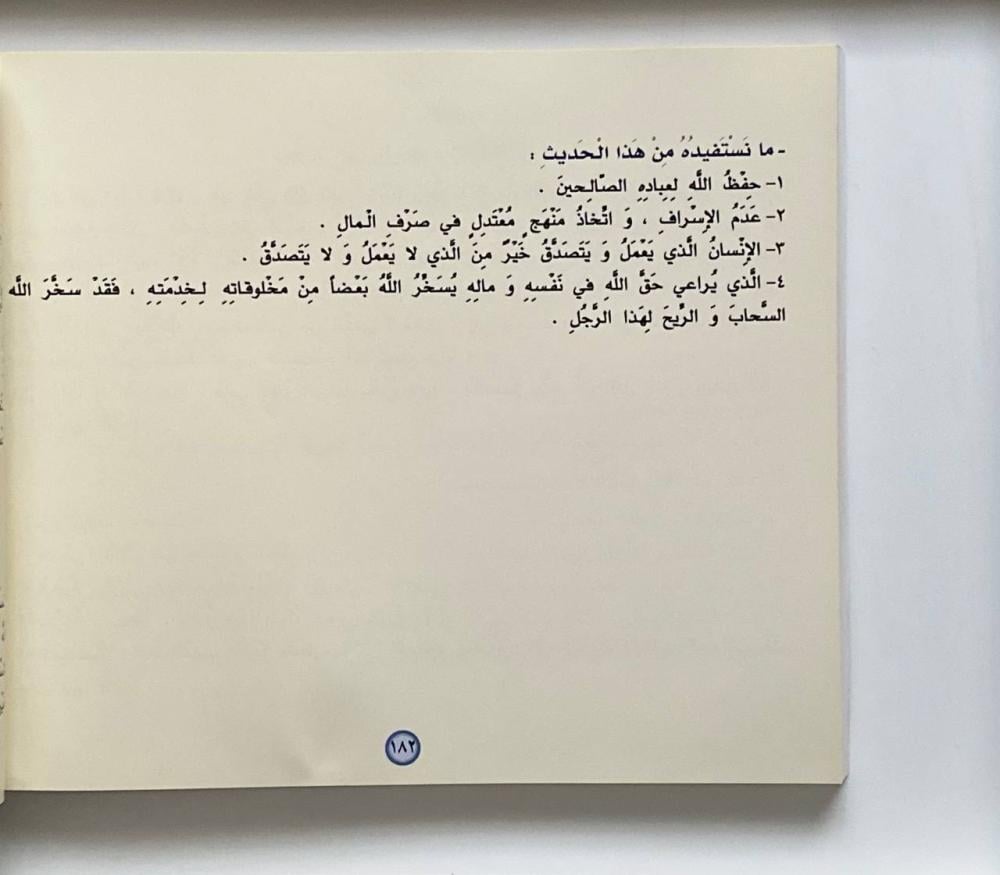 - ما نَسْتَفيدُهُ مِنْ هَذا الْحَديثِ :
١- حِفْظُ اللَّهِ لِعِبادِهِ الصّالِحينَ .
٢- عَدَمُ الإِسْرافِ ، وَ اتِّخاذُ مَنْهَجٍ مُعْتَدِلٍ في صَرْفِ الْمالِ .
٣- الإِنْسانُ الَّذي يَعْمَلُ وَ يَتَصَدَّقُ خَيْرٌ مِنَ الَّذي لا يَعْمَلُ وَ لا يَتَصَدَّقُ .
٤- الَّذي يُراعي حَقَّ اللَّهِ في نَفْسِهِ وَ مالِهِ يُسَخِّرُ اللَّهُ بَعْضاً مِنْ مَخْلوقاتِهِ لِخِدْمَتِهِ ، فَقَدْ سَخَّرَ اللَّه
السَّحابَ وَ الرِّيحَ لِهَذا الرَّجُلِ .
١٨٢